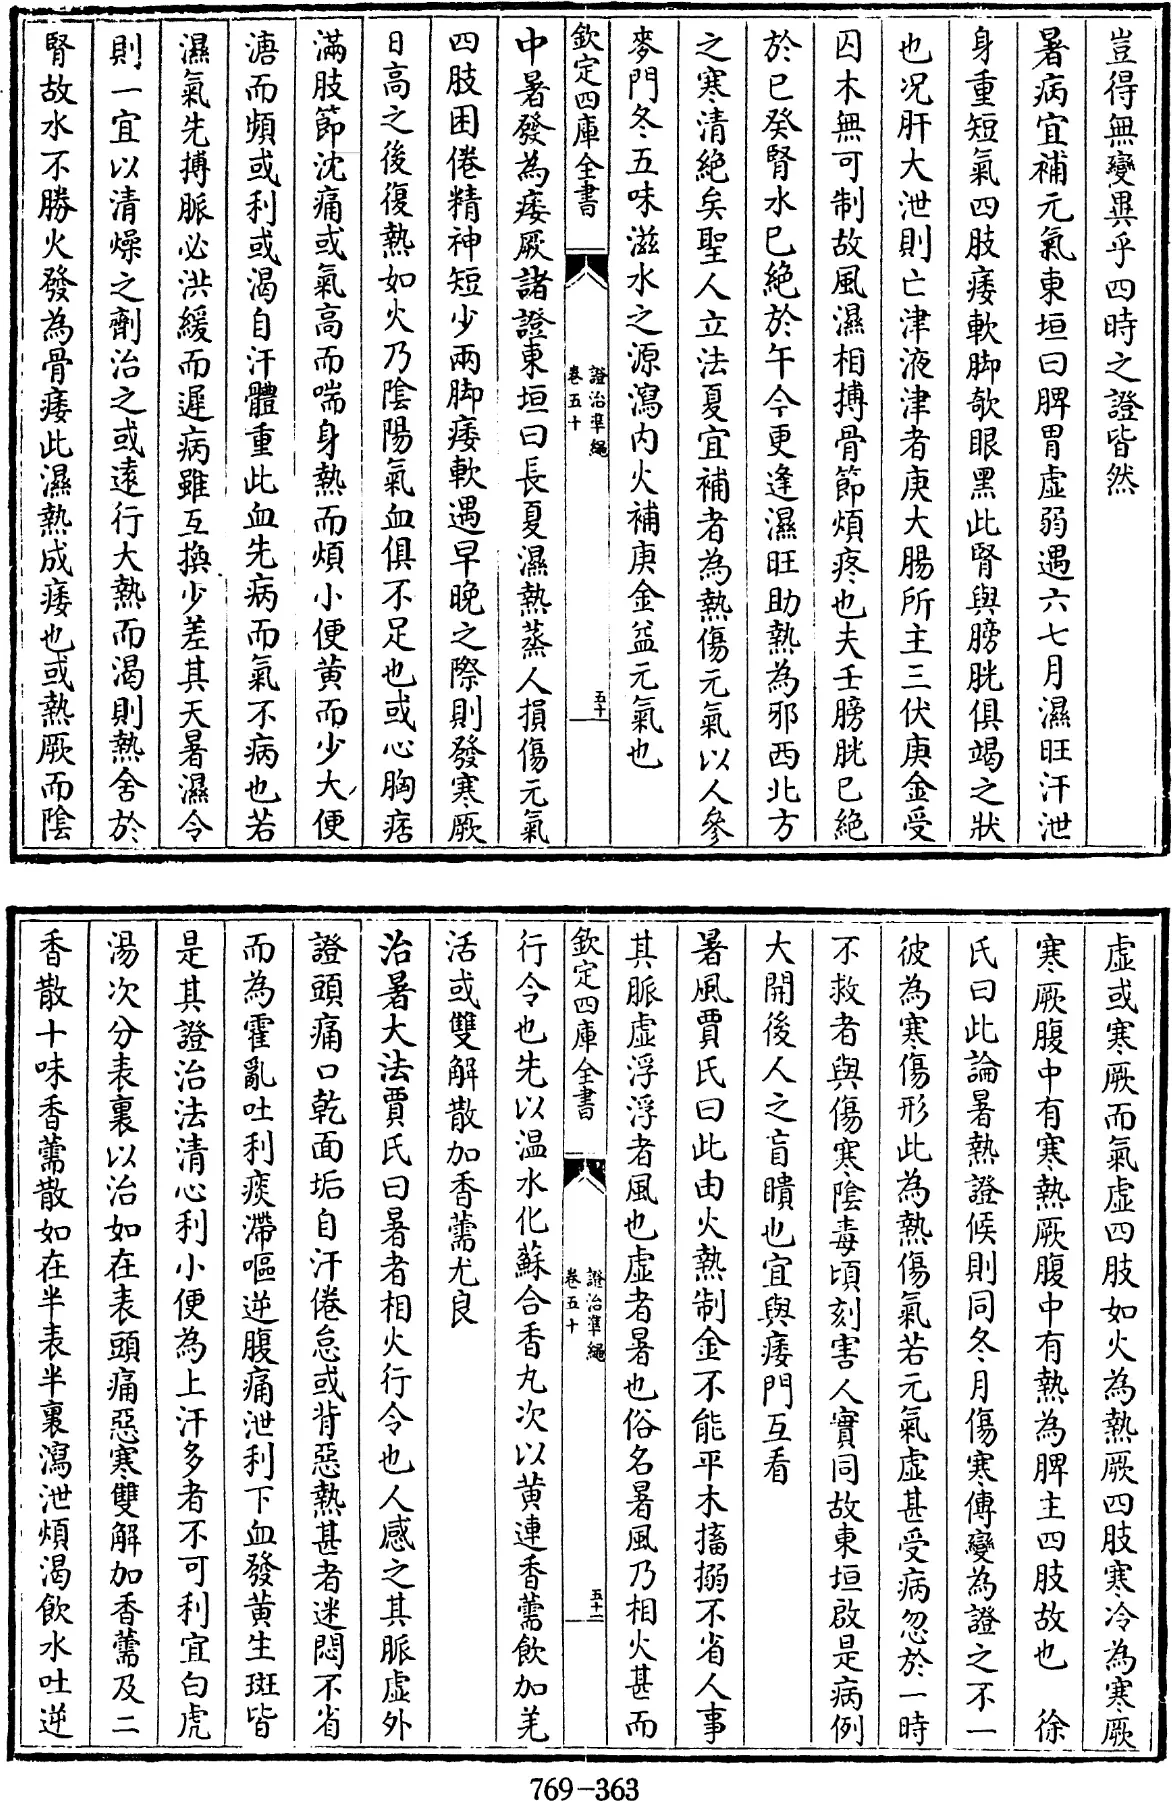 豈得無變異乎四時之證皆然
暑病宜補元氣東垣曰脾胃虛弱遇六七月濕旺汗泄
身重短氣四肢痿軟脚欹眼黑此腎與膀胱俱竭之狀
也况肝大泄則亡津液津者庚大腸所主三伏庚金受
囚木無可制故風濕相搏骨節煩疼也夫壬膀胱已絶
於巳癸腎水已絶於午今更逢濕旺助熱為邪西北方
之寒清絶矣聖人立法夏宜補者為熱傷元氣以人參
麥門冬五味滋水之源瀉内火補庚金益元氣也
欽定四庫全書
證治準繩
卷五十
五十
中暑發為痿厥諸證東垣曰長夏濕熱蒸人損傷元氣
四肢困倦精神短少兩脚痿軟遇早晚之際則發寒厥
日高之後復熱如火乃陰陽氣血俱不足也或心胸痞
滿肢節沈痛或氣高而喘身熱而煩小便黄而少大便
溏而頻或利或渴自汗體重此血先病而氣不病也若
濕氣先搏脈必洪緩而遲病雖互換少差其天暑濕令
則一宜以清燥之劑治之或逺行大熱而渴則熱舍於
腎故水不勝火發為骨痿此濕熱成痿也或熱厥而陰
虛或寒厥而氣虛四肢如火為熱厥四肢寒冷為寒厥
寒厥腹中有寒熱厥腹中有熱為脾主四肢故也　徐
氏曰此論暑熱證候則同冬月傷寒傳變為證之不一
彼為寒傷形此為熱傷氣若元氣虛甚受病忽於一時
不救者與傷寒陰毒頃刻害人實同故東垣啟是病例
大開後人之盲瞶也宜與痿門互看
暑風賈氏曰此由火熱制金不能平木搐搦不省人事
其脈虛浮浮者風也虛者暑也俗名暑風乃相火甚而
欽定四庫全書
證治準繩
卷五十
五十一
行令也先以温水化蘇合香丸次以黄連香薷飲加羌
活或雙解散加香薷尤良
治暑大法賈氏曰暑者相火行令也人感之其脈虛外
證頭痛口乾面垢自汗倦怠或背惡熱甚者迷悶不省
而為霍亂吐利痰滯嘔逆腹痛泄利下血發黄生斑皆
是其證治法清心利小便為上汗多者不可利宜白虎
湯次分表裏以治如在表頭痛惡寒雙解加香薷及二
香散十味香薷散如在半表半裏瀉泄煩渴飲水吐逆
769-363